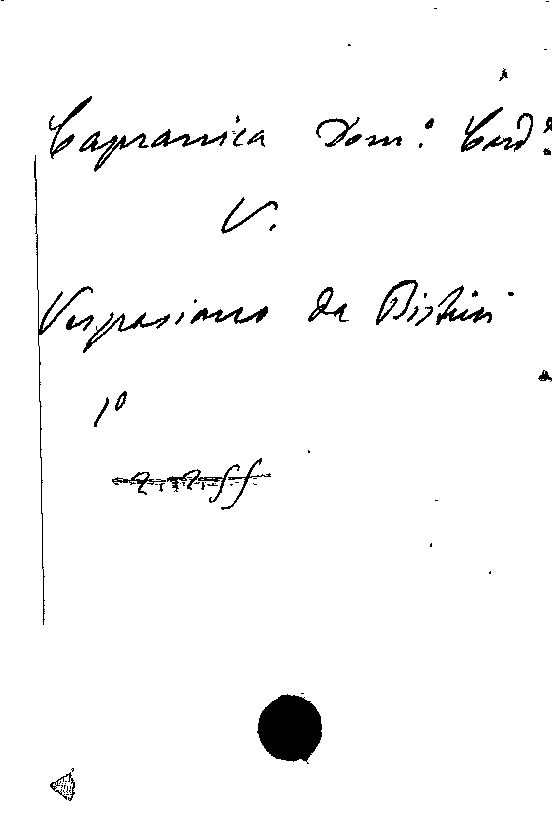 Capranica Dom.º Card.º
V.
Vespasiano da Bisticci
1º